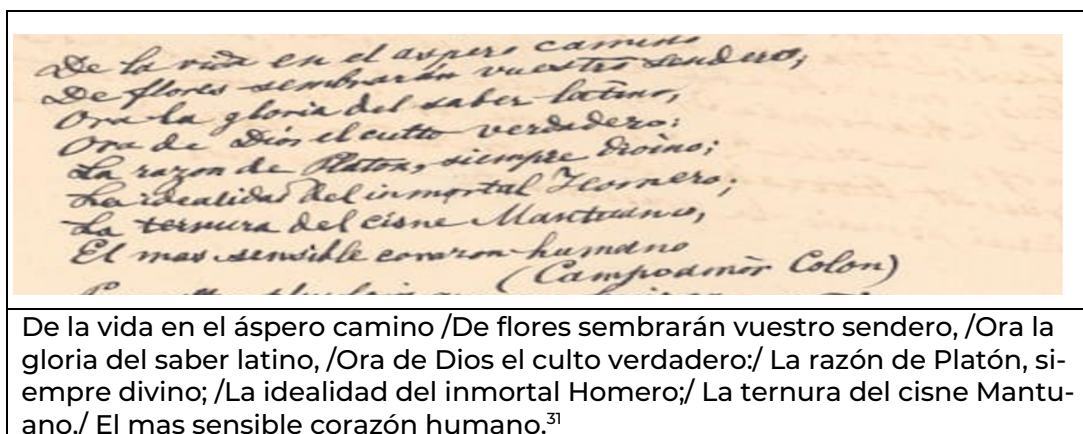 De la vida en el aspero camino
De flores sembrarán vuestro sendero,
Ora la gloria del saber latino,
Ora de Dios el culto verdadero:
La razon de Platon, siempre divino;
La idealidad del inmortal Homero;
La ternura del cisne Mantuano,
El mas sensible corazon humano
(Campoamòr Colon)
De la vida en el áspero camino /De flores sembrarán vuestro sendero, /Ora la
gloria del saber latino, /Ora de Dios el culto verdadero:/ La razón de Platón, si-
empre divino; /La idealidad del inmortal Homero;/ La ternura del cisne Mantu-
ano./ El mas sensible corazón humano.³¹